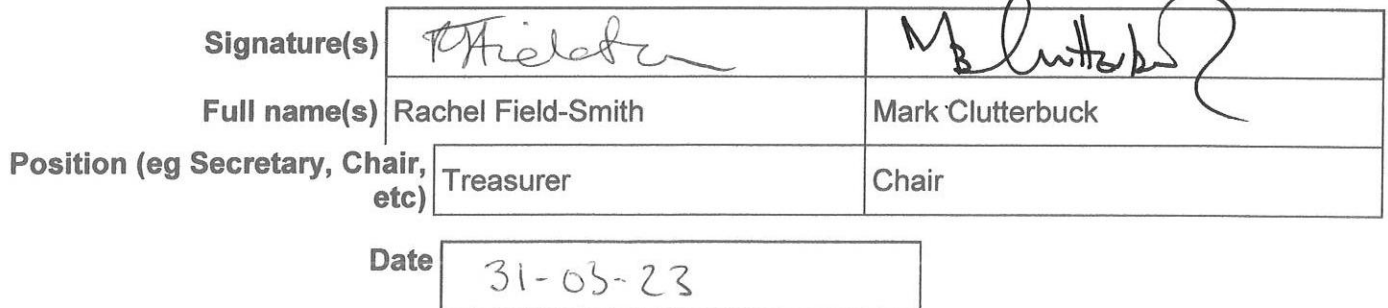 Signature(s)
Full name(s) Rachel Field-Smith Mark Clutterbuck
Position (eg Secretary, Chair, etc) Treasurer Chair
Date 31-03-23